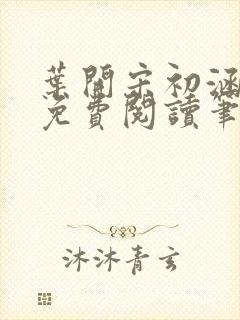 葉開宋初涵
免費閱讀筆
沐沐青玄